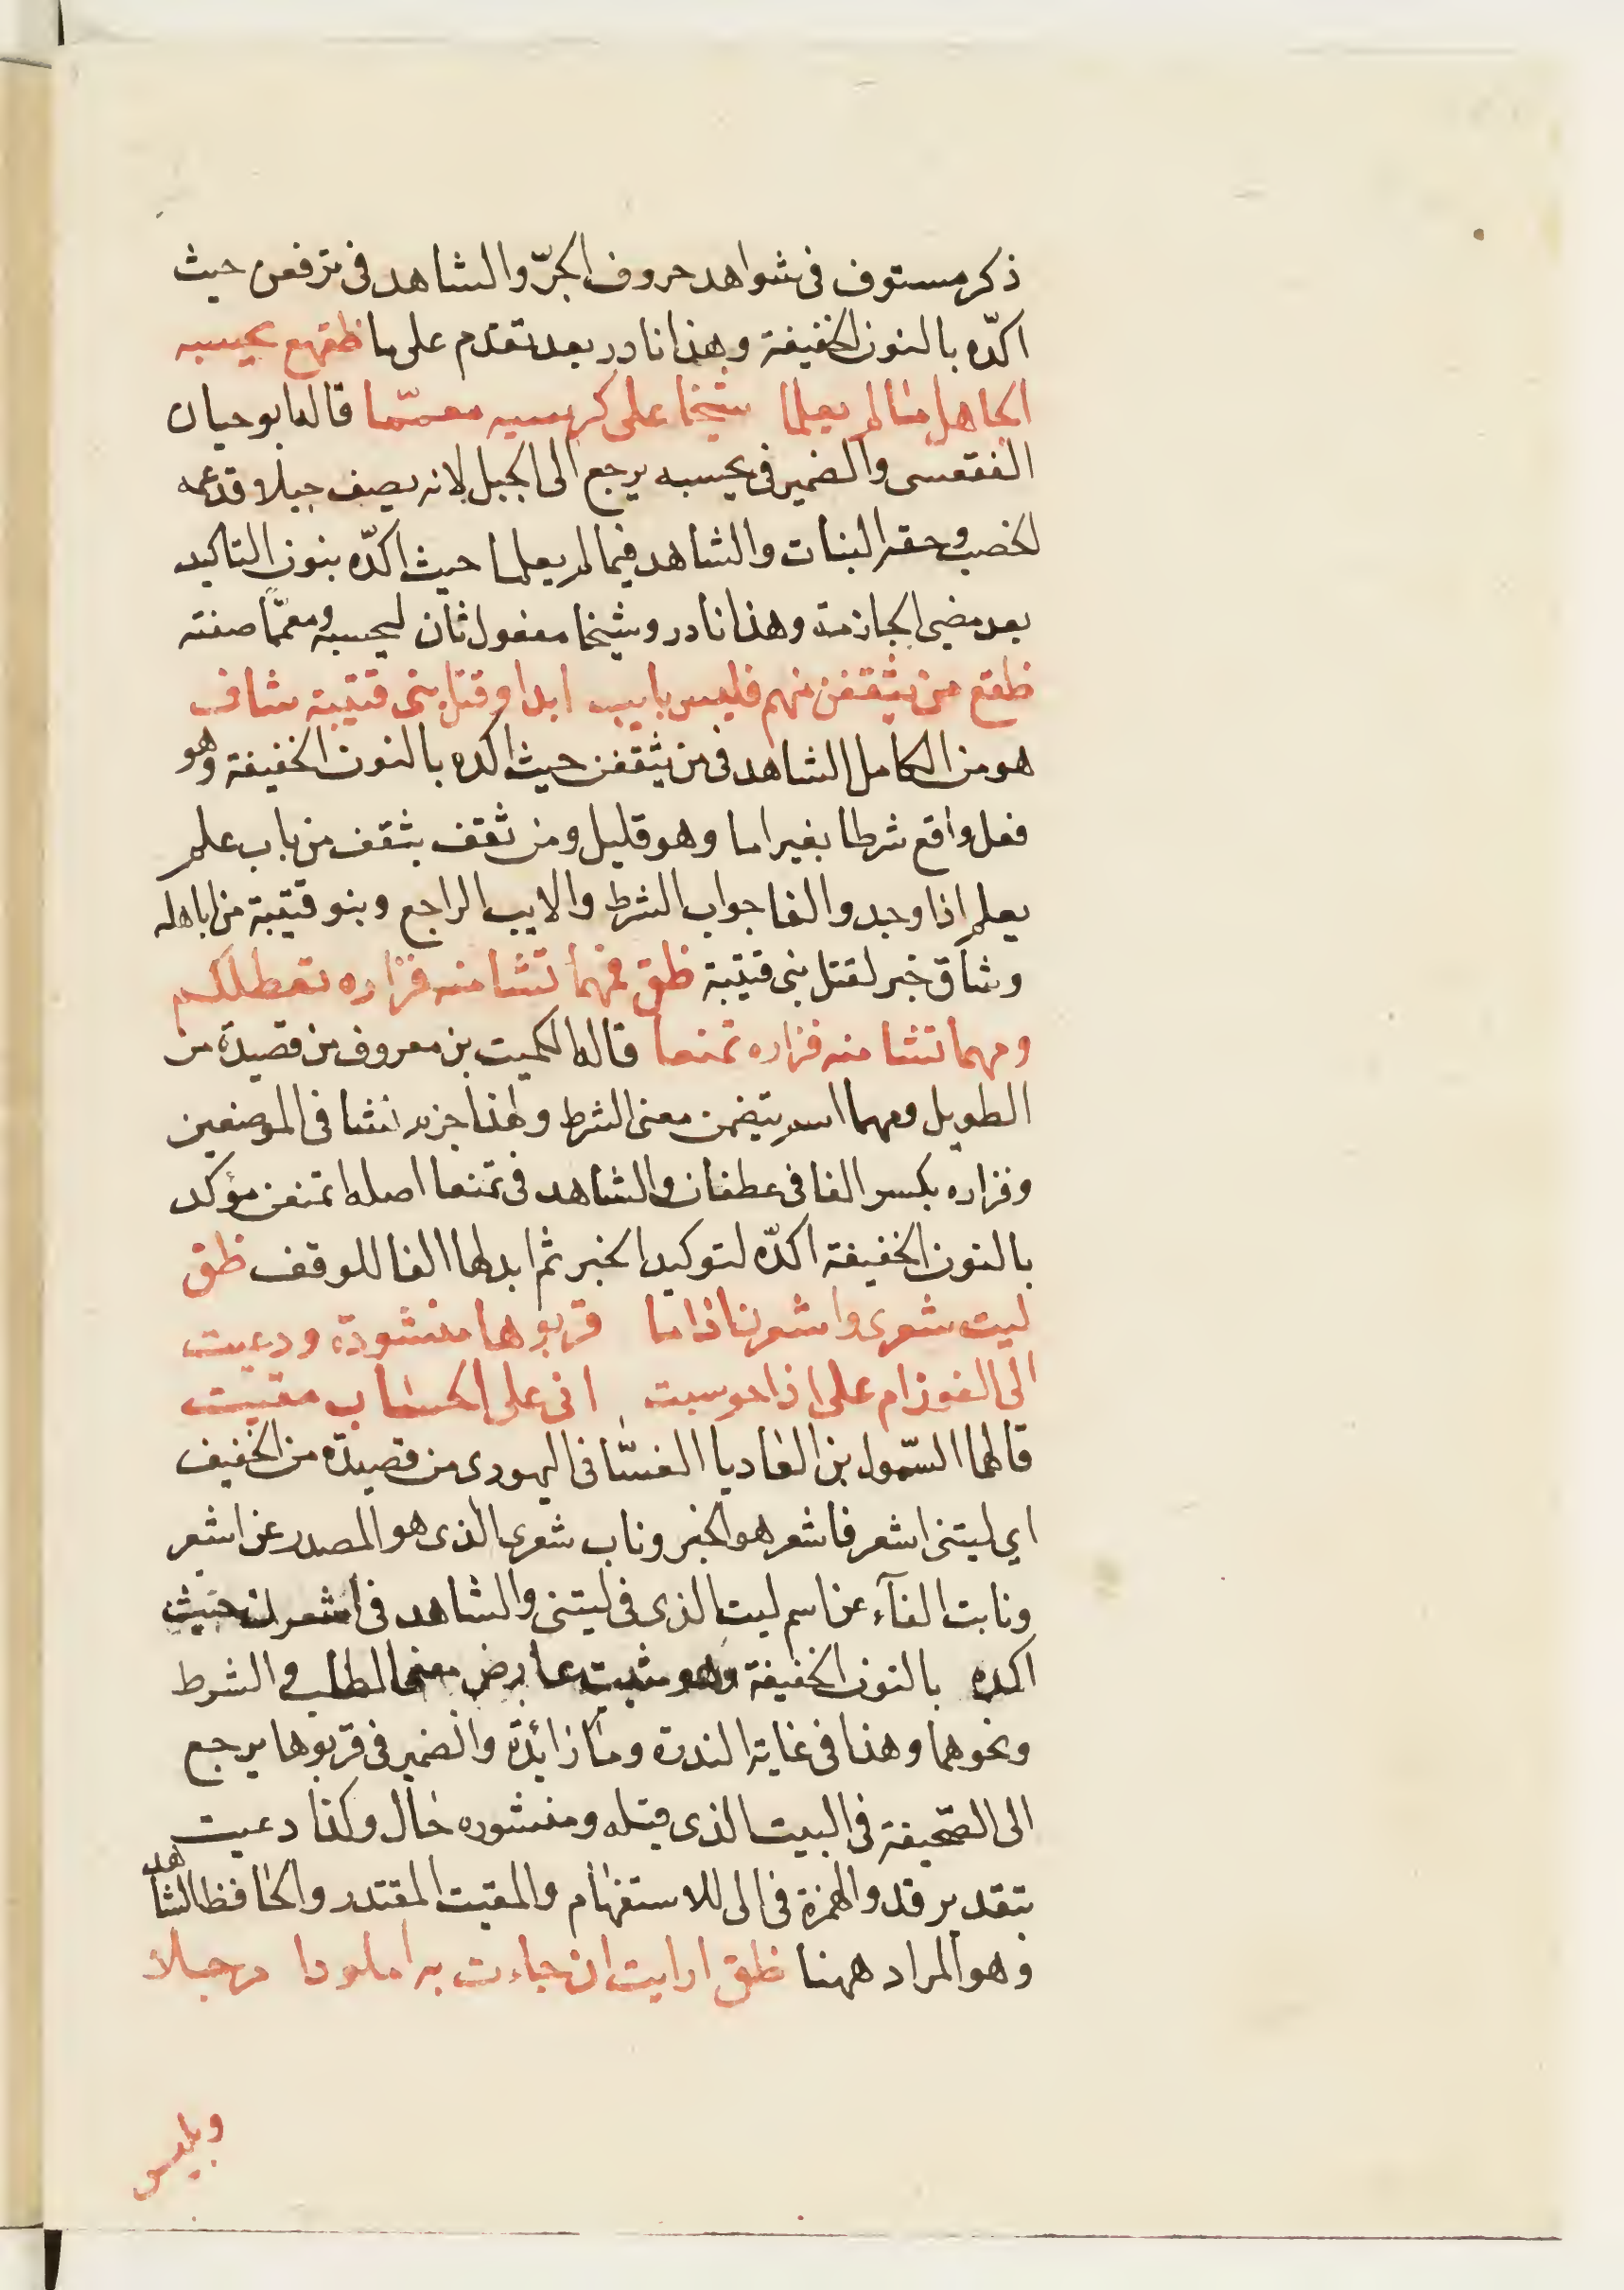 ذكر مستوف في شواهد حروف الجرّ والشاهد في ترفعن حيث
اكدّه بالنون الخفيفة وهذا نادر بعد تقدم على ما ظقهع يحسبه
الجاهل ما لم يعلما شيخا على كرسيه معمّما قاله ابو حيان
الفقعسى والضمير في يحسبه يرجع الى الجبل لانه يصف جبلا قد عمه
الخصب وحقه النبات والشاهد فيما لم يعلما حيث اكدّه بنون التاكيد
بعد مضي الجازمة وهذا نادر وشيخا مفعول ثان ليحسبه ومعمّما صفته
ظقع من يثقفن منهم فليس بايب ابدا وقتل بنى قتيبة شاف
هو من الكامل الشاهد في من يثقفن حيث اكده بالنون الخفيفة وهو
فعل واقع شرطا بغير اما وهو قليل ومن ثقف يثقف من باب علم
يعلم اذا وجد والفا جواب الشرط والايب الراجع وبنو قتيبة من باهله
وشاق خبر لقتل بنى قتيبة ظق فمهما تشا منه فزاره تعطلكم
ومهما تشا منه فزاره تمنعا قاله الكميت بن معروف من قصيدة من
الطويل ومهما اسم يتضمن معنى الشرط ولهذا جزم تشا في الموضعين
وفزاره بكسر الفا في غطفان والشاهد في تمنعا اصله تمنعن مؤكد
بالنون الخفيفة اكدّه لتوكيد الخبر ثم ابدلها الفا للوقف ظق
ليت شعرى واشعرنا ذاما قربوها منشودة ودعيت
الى الفوز ام على اذا حوسبت انى على الحساب مقيت
قالهما السّمول بن الغاديا الغسّانى اليهودى من قصيدة من الخفيف
اي ليتنى اشعر فاشعر هو الخبر وناب شعرى الذى هو المصدر عن اشعر
ونابت الفآء عن اسم ليت الذى في ليتنى والشاهد في اشعرن حيث
اكده بالنون الخفيفة وهو مثبت عا رض معنى الطلب و الشرط
ونحوهما وهذا في غاية الندرة وما زائدة والضمير في قربوها يرجع
الى الصّحيفة في البيت الذى قبله ومنشوره حال وكذا دعيت
بتقدير قد والهمزة في الى للاستفهام والمقيت المقتدر والحافظ الشاهد
وهو المراد ههنا ظق ارايت ان جاءت به املودا مرجلا
وبلبس